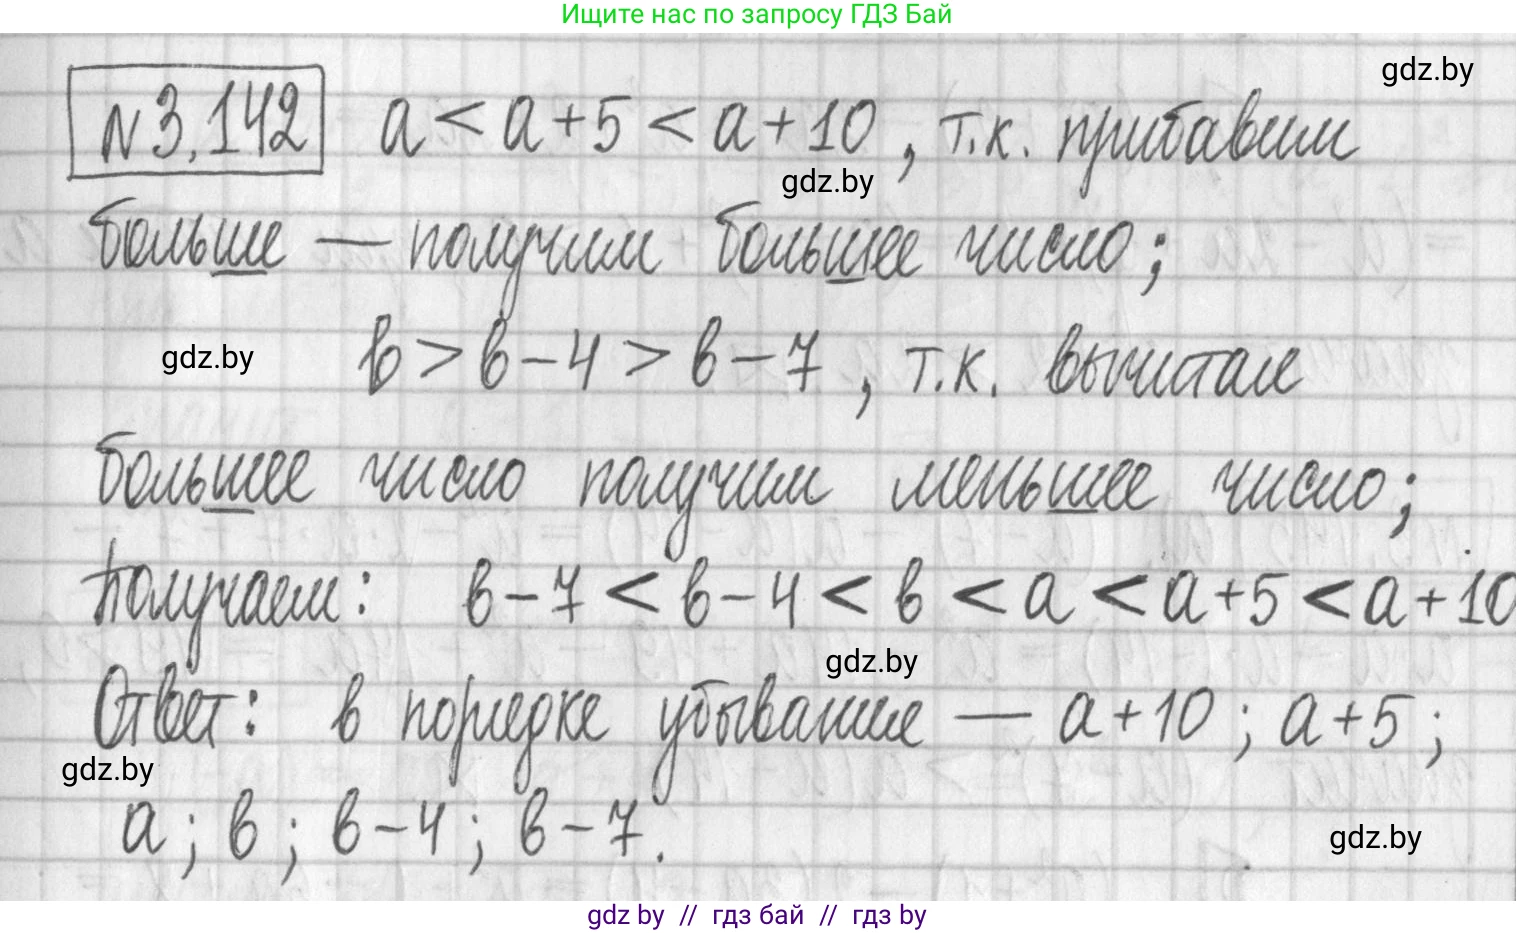 Ищите нас по запросу ГДЗ Бай
gdz.by
№3.142 a < a+5 < a+10, т.к. прибавим
gdz.by
больше — получим большее число;
gdz.by
b > b-4 > b-7, т.к. вычитая
большее число получим меньшее число;
Получаем: b-7 < b-4 < b < a < a+5 < a+10
gdz.by
Ответ: в порядке убывания — a+10; a+5;
gdz.by
a; b; b-4; b-7.
gdz.by
gdz by // гдз бай // гдз by